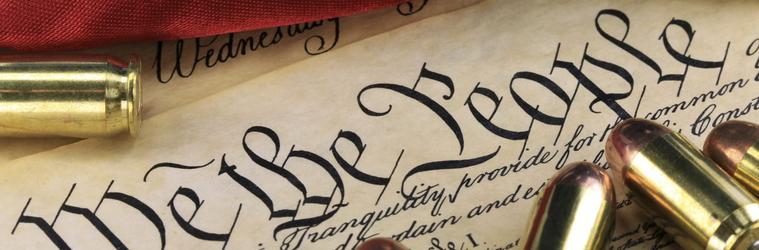 Wednesday
We the People
Tranquility, provide for the common
dain and es
Const